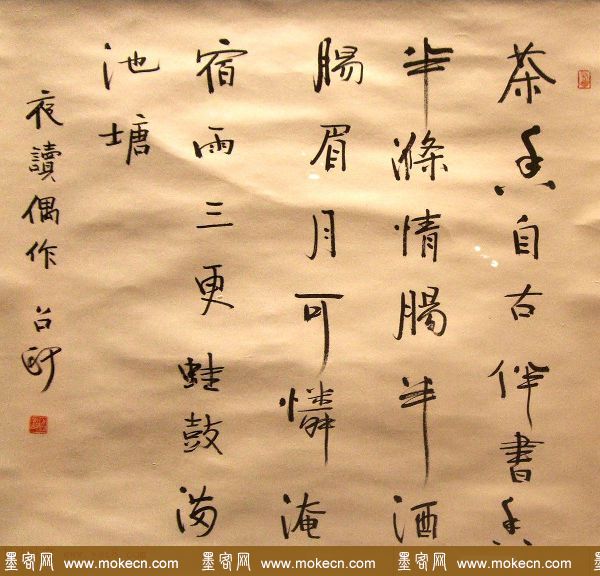 茶香自古伴書香
半滌情腸半酒
腸眉月可憐淹
宿雨三更蛙鼓满
池塘
夜讀偶作
墨客网 www.mokecn.com 墨客网 www.mokecn.com 墨客网 www.mokecn.com